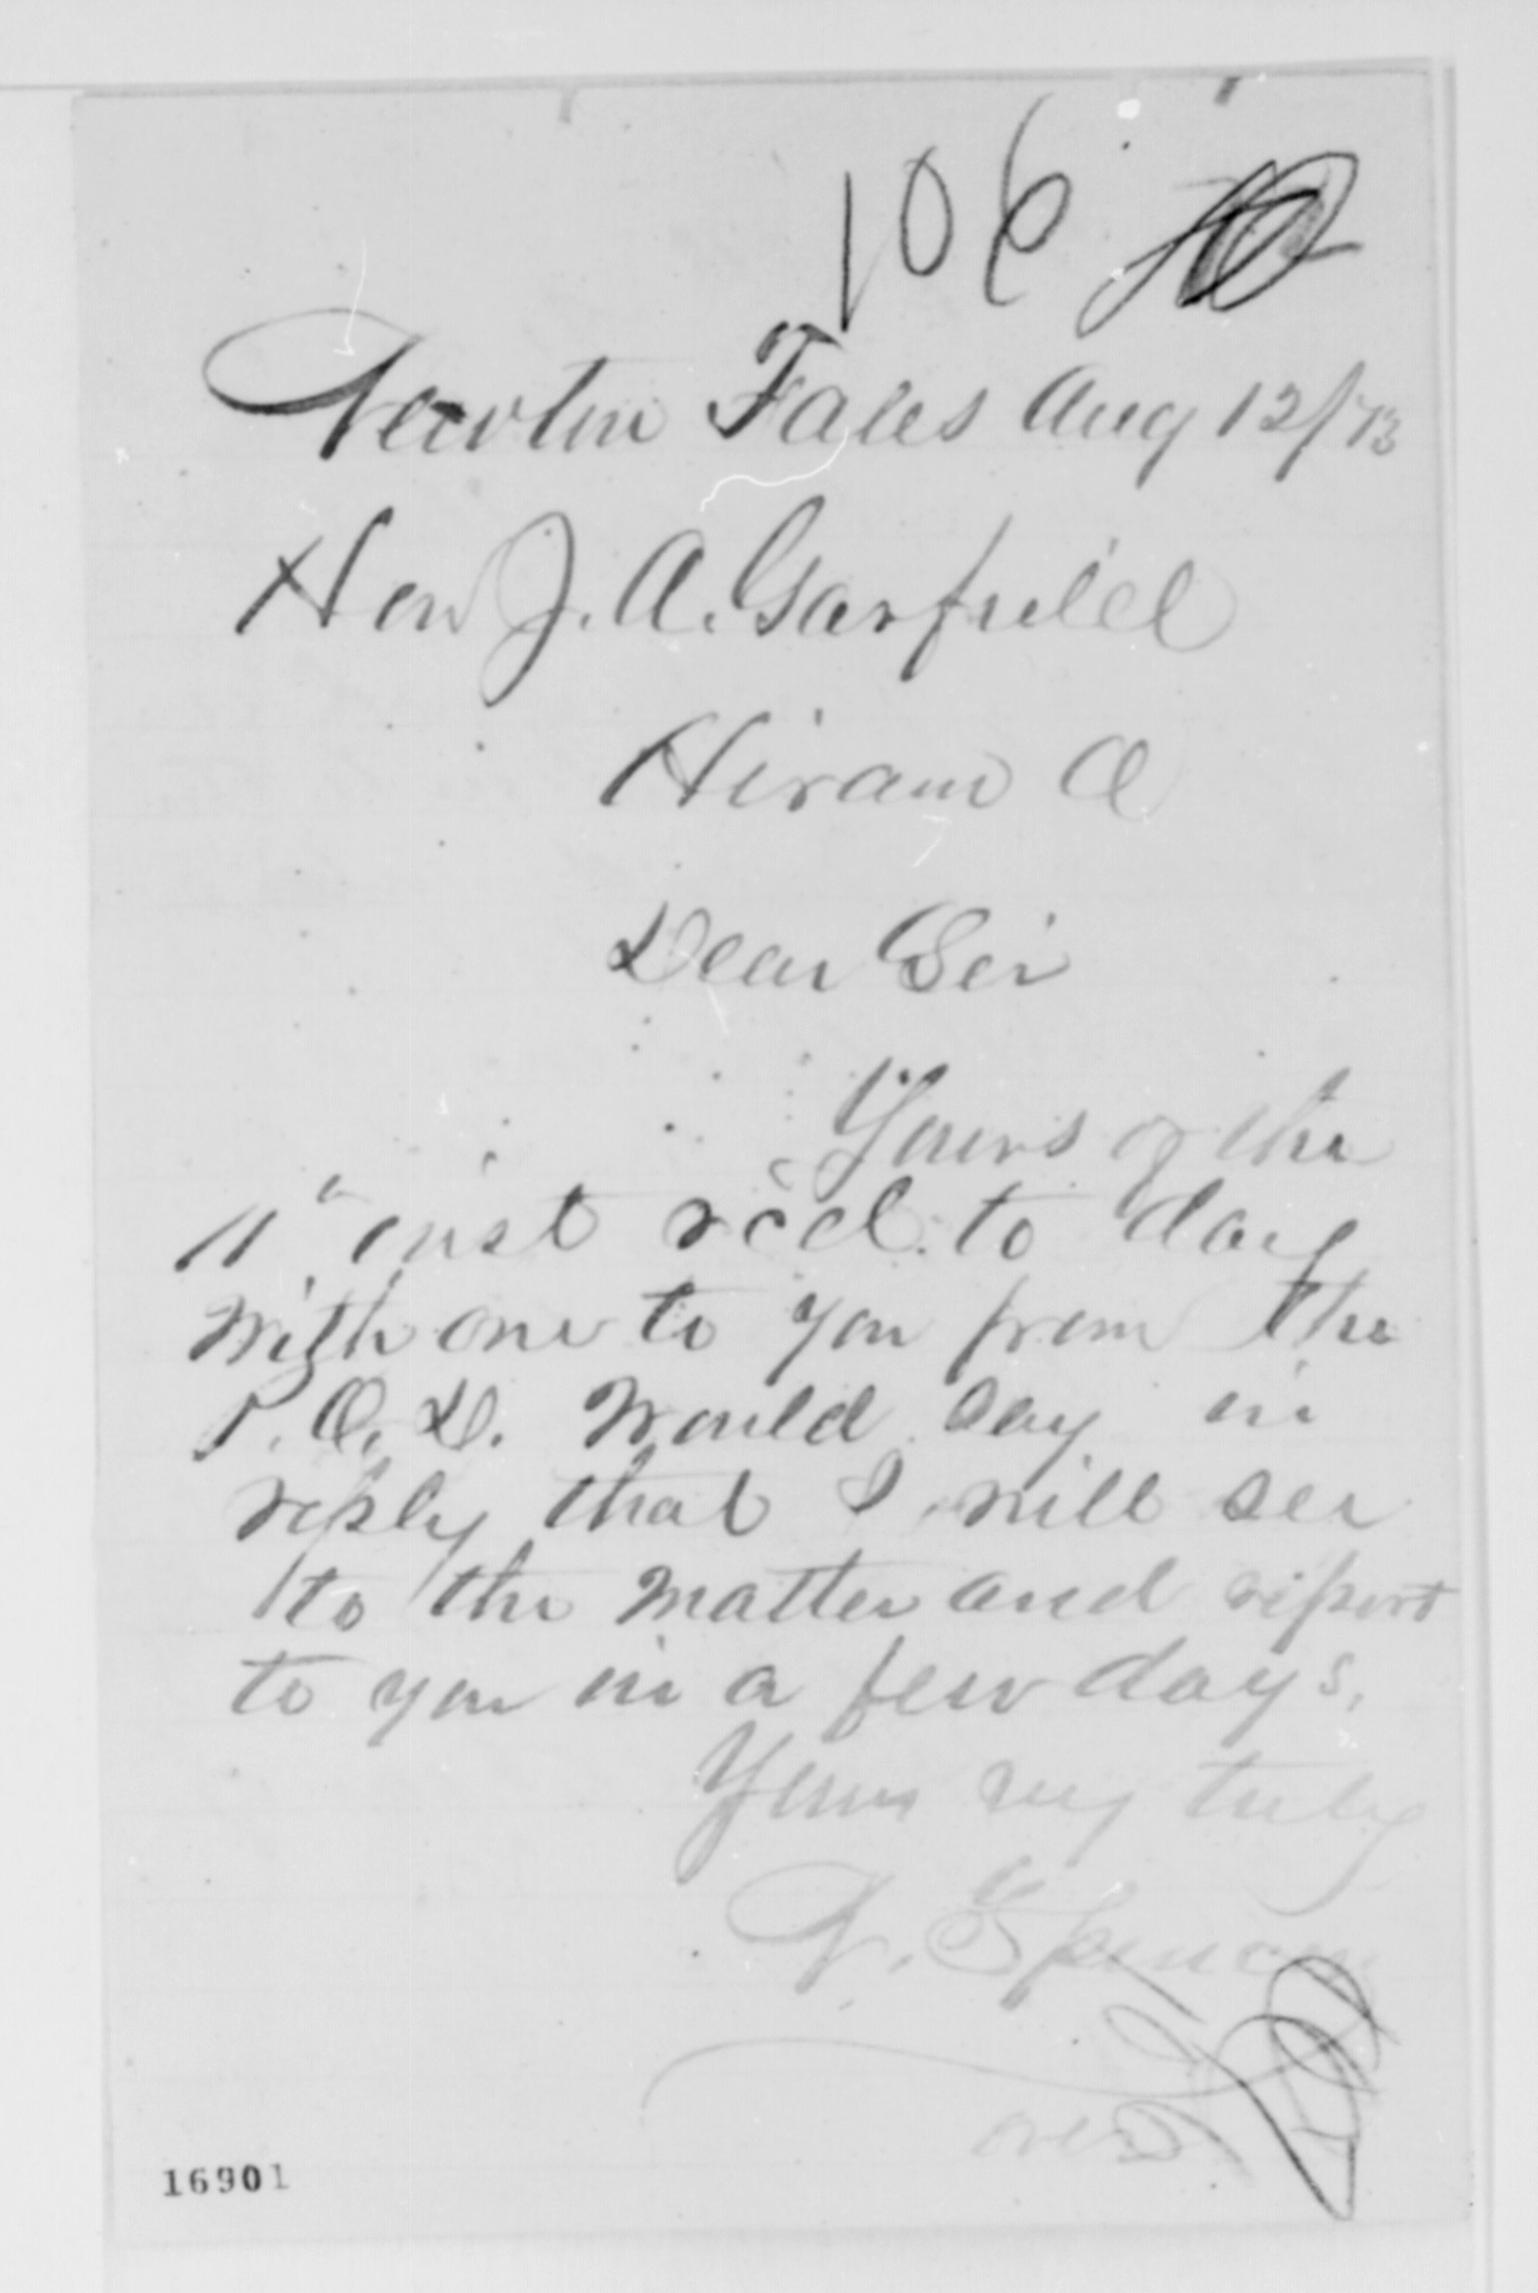 106
Newton Falls Aug 12/73
Hon J. A. Garfield
Hiram O
Dear Sir
Yours of the
11" inst rec'd. to day
with one to you from the
P. O. D. Would say in
reply that I will see
to the matter and report
to you in a few days.
Yours very truly
N. Spencer
over
16901